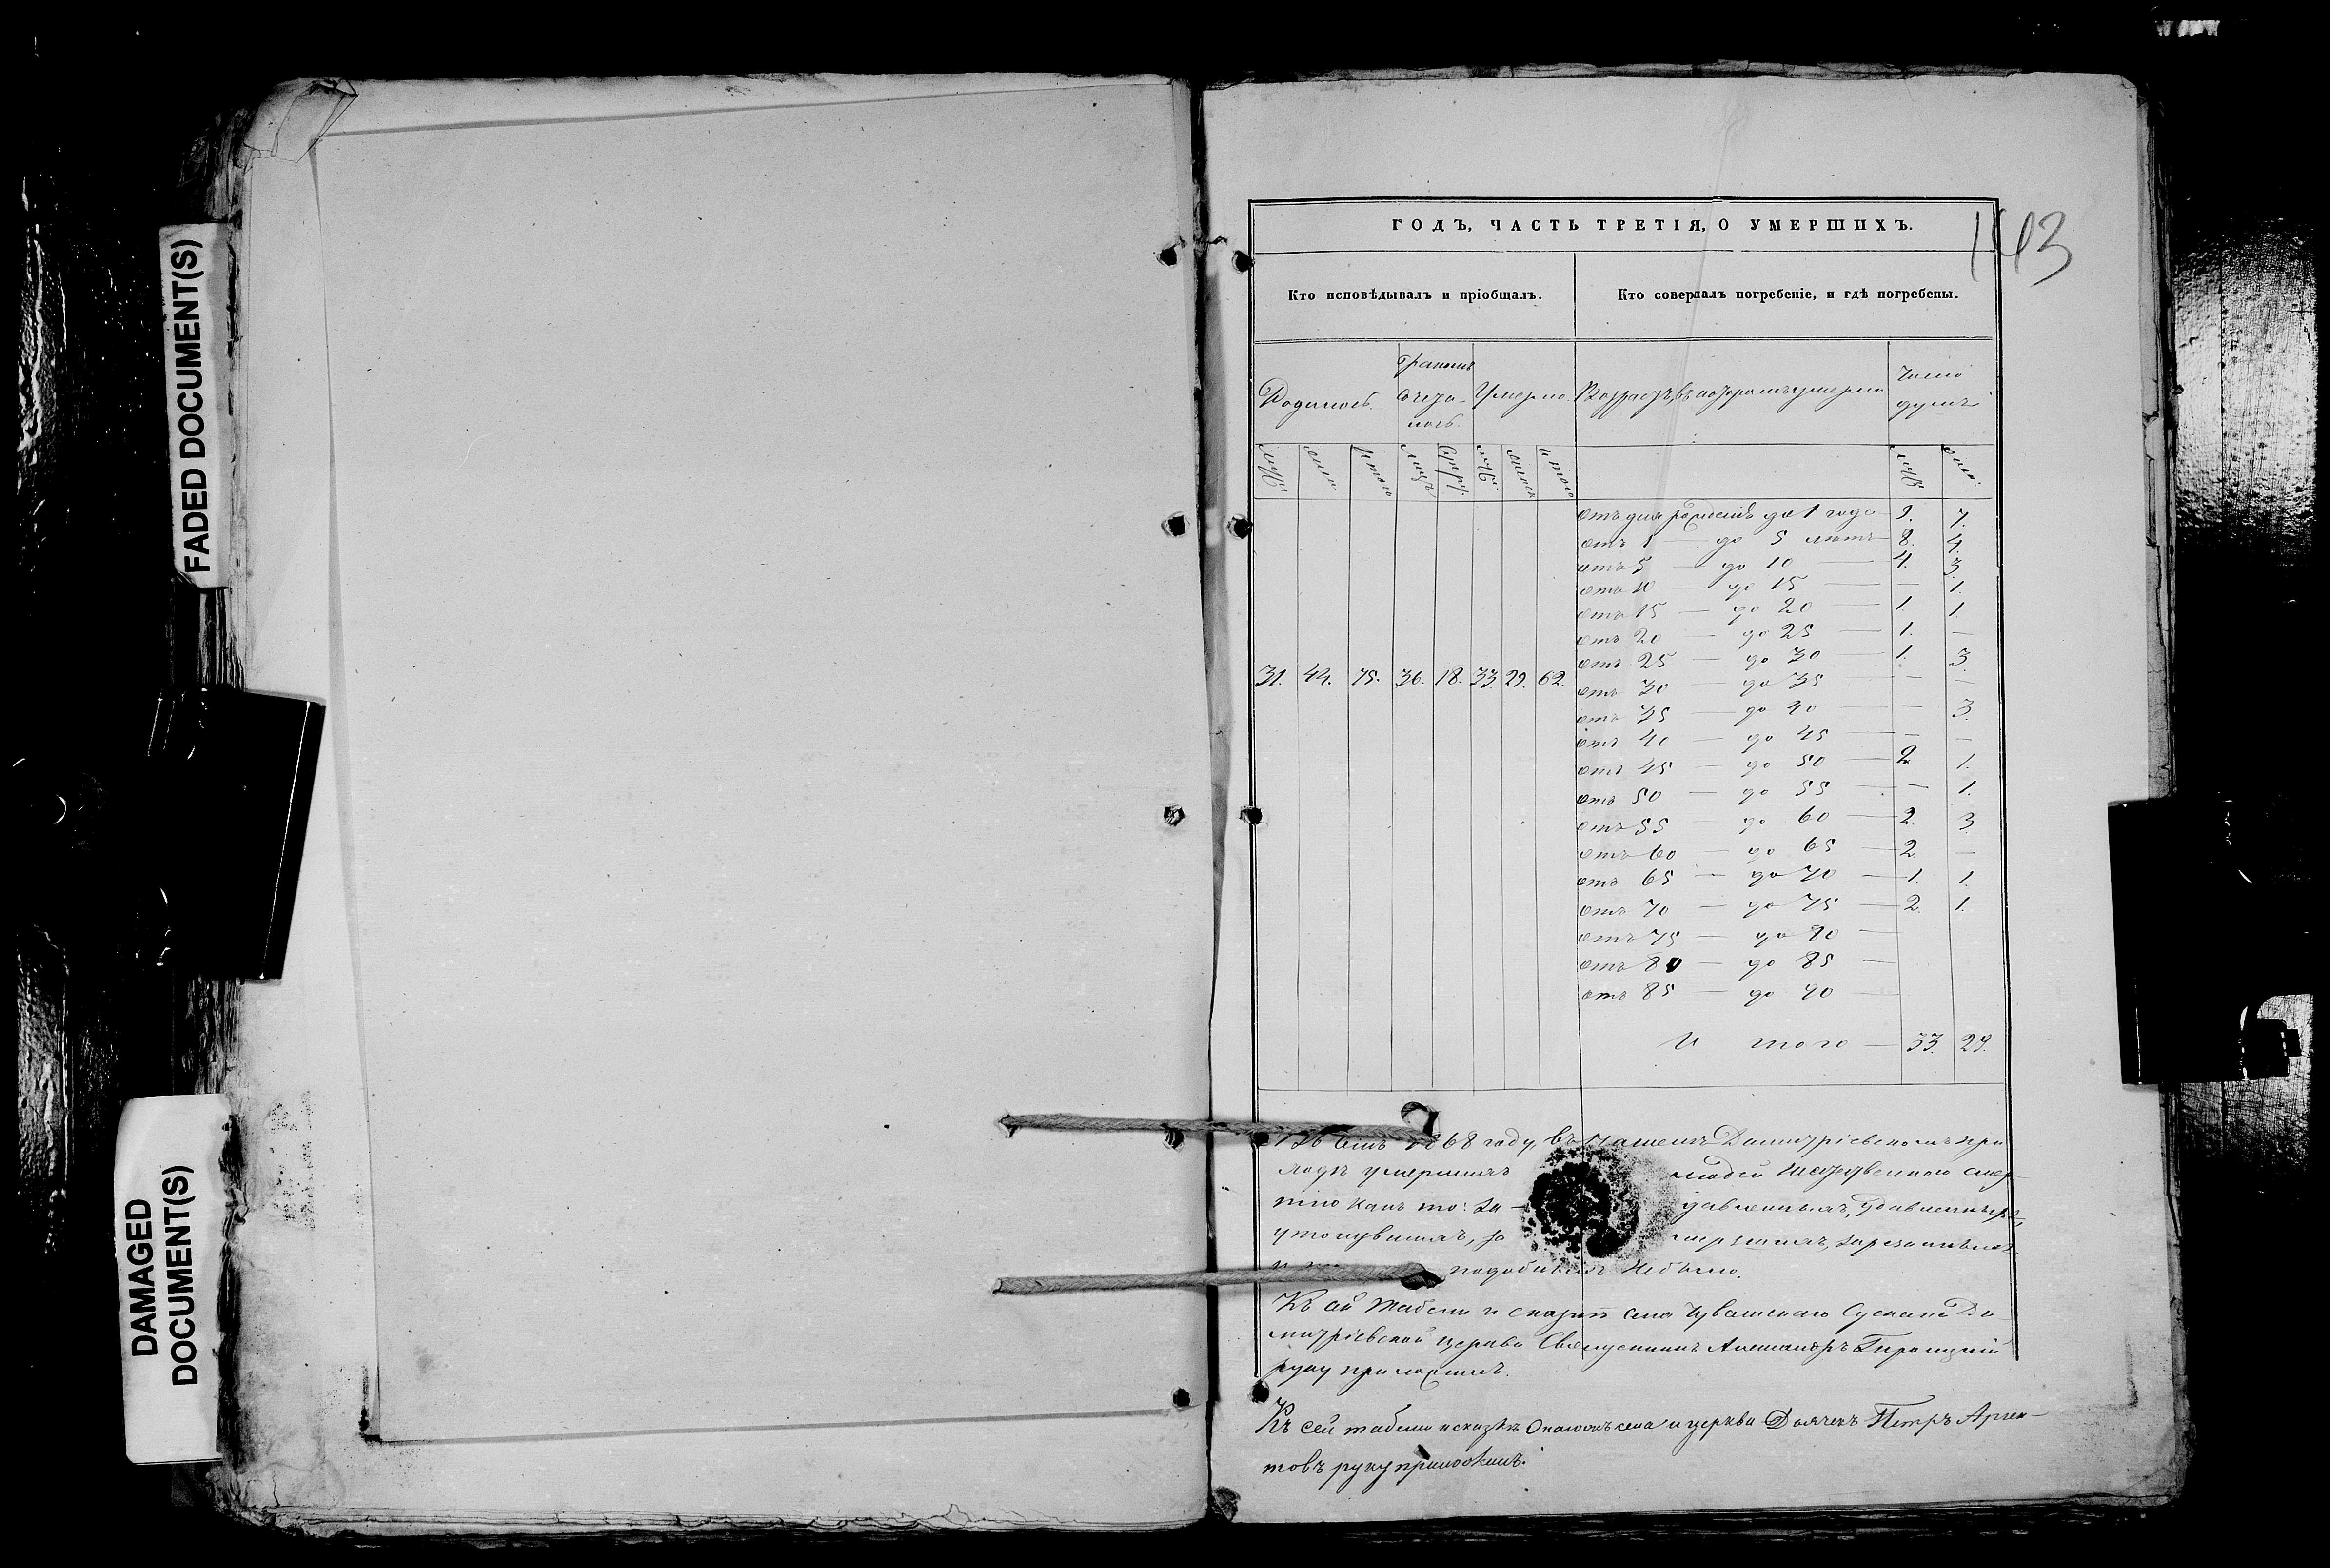 FADED DOCUMENT(S)
DAMAGED
DOCUMENT(S)
143
ГОДЪ, ЧАСТЬ ТРЕТІЯ, О УМЕРШИХЪ.
Кто исповѣдывалъ и пріобщалъ. Кто совершалъ погребеніе, и гдѣ погребены.
Родилось. Бракомъ сочеталось. Умерло. Возрастъ, въ которомъ умерли Число душъ
муж. жен. Итого лицъ супру. муж. женск. Итого муж. жен.
31. 44. 75. 36. 18. 33. 29. 62.
отъ дня рожденія до 1 года 9. 7.
отъ 1 — до 5 лѣтъ — 8. 4.
отъ 5 — до 10 — 4. 3.
отъ 10 — до 15 — — 1.
отъ 15 — до 20 — 1. 1.
отъ 20 — до 25 — 1. —
отъ 25 — до 30 — 1. 3.
отъ 30 — до 35 — — —
отъ 35 — до 40 — — 3.
отъ 40 — до 45 — — —
отъ 45 — до 50 — 2 1.
отъ 50 — до 55 — — 1.
отъ 55 — до 60 — 2. 3.
отъ 60 — до 65 — 2. —
отъ 65 — до 70 — 1. 1.
отъ 70 — до 75 — 2. 1.
отъ 75 — до 80 —
отъ 80 — до 85 —
отъ 85 — до 90 —
Итого — 33. 29.
1868 году, въ нашемъ Димитріевскомъ при
ходѣ умершихъ людей
какъ то: за - давленныхъ, удавленныхъ,
утонувшихъ, за мерзшихъ, зарезанныхъ
и подобныхъ небыло.
Къ сей табели и сказкѣ села Чувашскаго Сускана Ди
митріевской церкви Священникъ Александръ Троицкій
руку приложилъ.
Къ сей табели и сказкѣ оныхъ села и церкви Дьячекъ Петръ Арген-
товъ руку приложилъ.